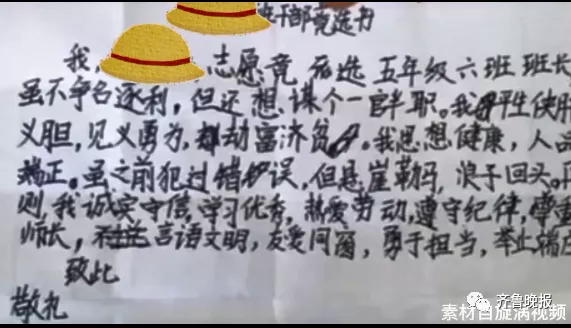 选干部竞选书
我, 志愿竞选五年级六班班长
虽不争名逐利,但还想谋个一官半职。我平生侠肝
义胆,见义勇为,劫富济贫。我思想健康,人品
端正。虽之前犯过错误,但悬崖勒马,浪子回头。再
则,我诚实守信,学习优秀,热爱劳动,遵守纪律,尊重
师长,言语文明,友爱同窗,勇于担当,举止端庄
致此
敬礼
齐鲁晚报
素材自旋涡视频